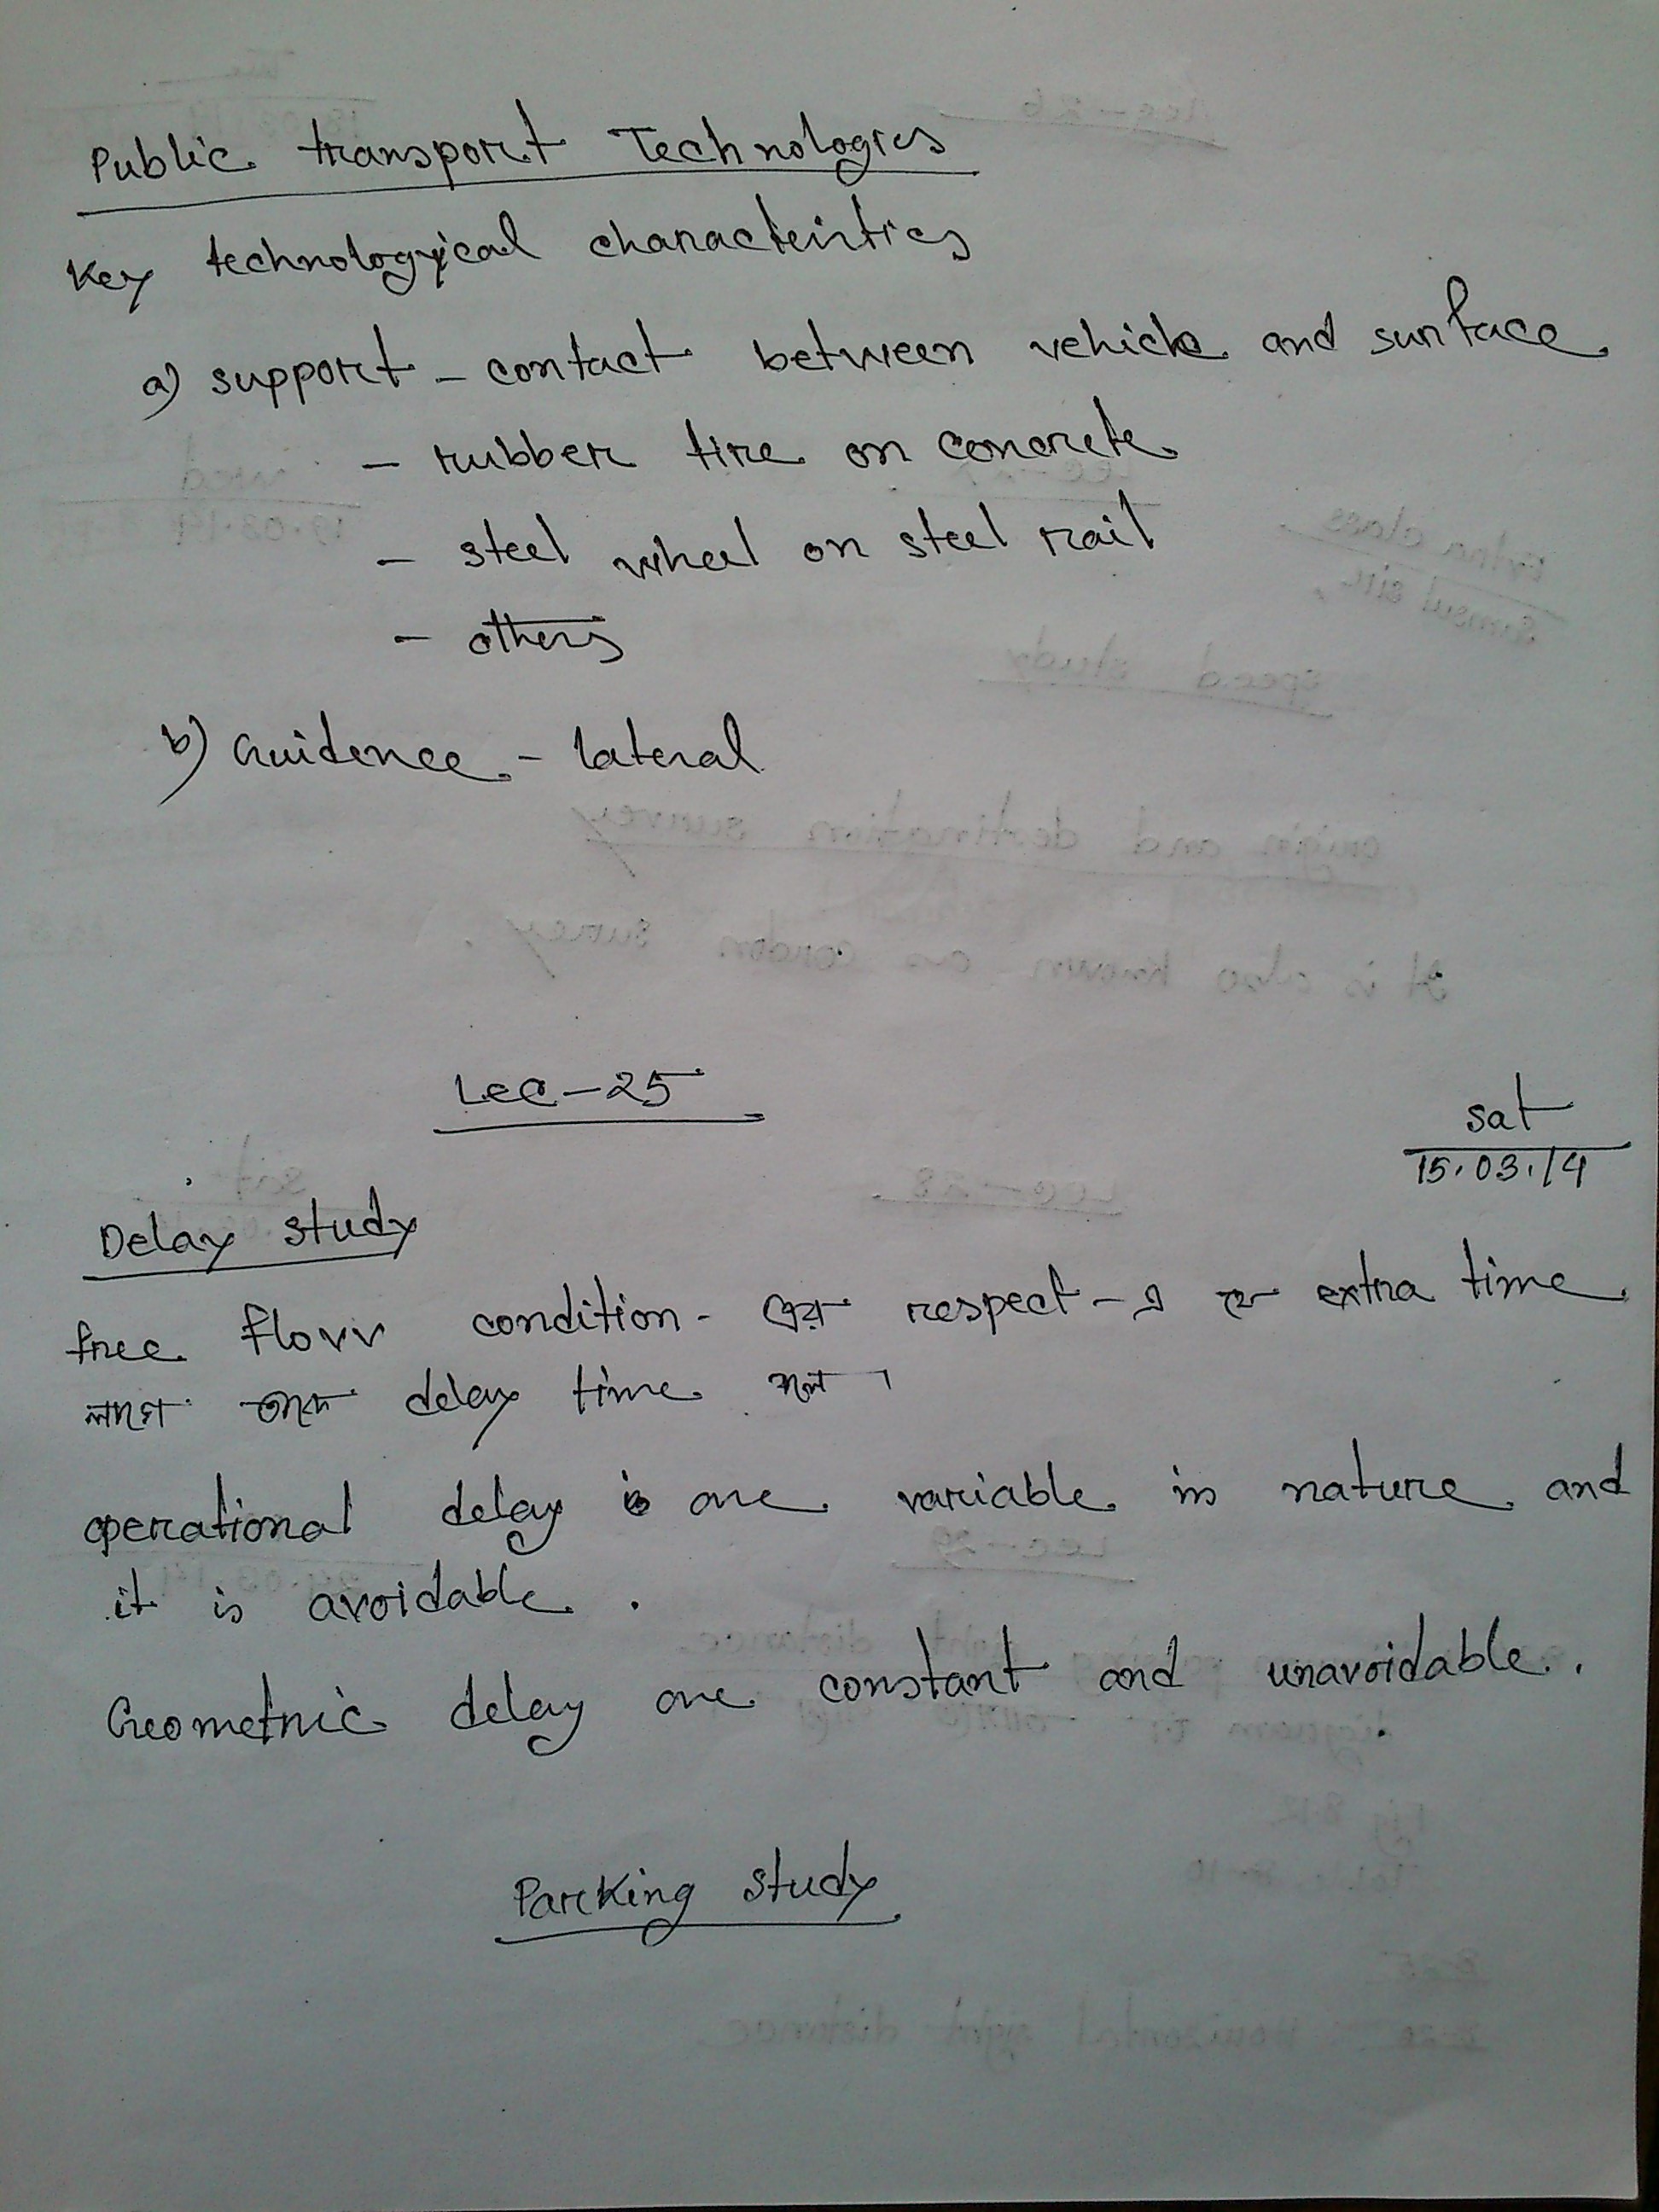 Public transport Technologies
Key technological characteristics
a) support - contact between vehicle and surface
- rubber tire on concrete
- steel wheel on steel rail
- others
b) Guidence - lateral
Lec-25
sat
15.03.14
Delay study
free flow condition- এর respect-এ যে extra time
লাগে তাকে delay time বলে ।
operational delay is one variable in nature and
it is avoidable.
Geometric delay one constant and unavoidable.
Parking study